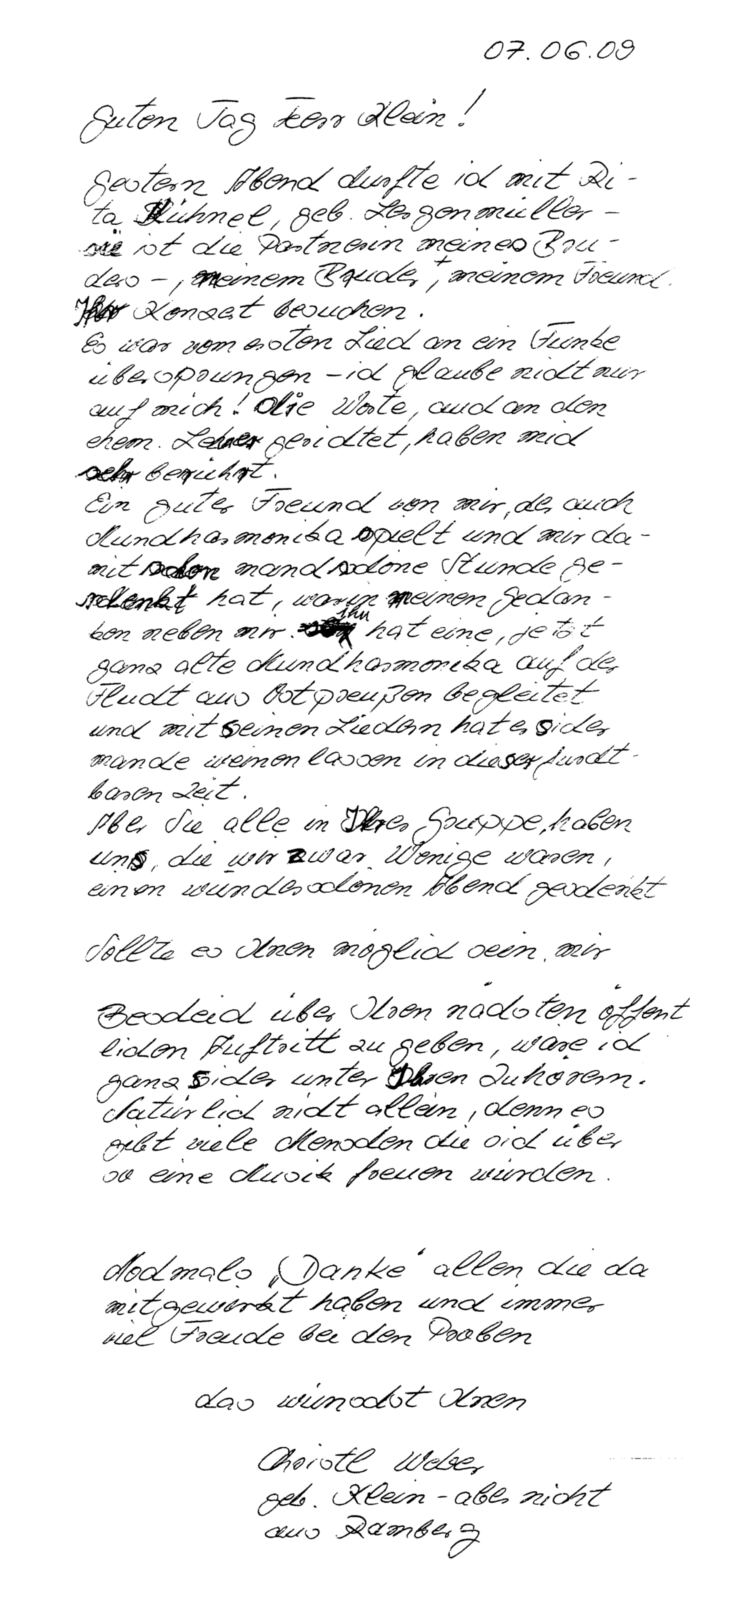 07.06.09
Guten Tag Herr Klein!
Gestern Abend durfte ich mit Ri-
ta Kühnel, geb. Lergenmüller -
sie ist die Partnerin meines Bru-
ders -, meinem Bruder, + meinem Freund
Ihr Konzert besuchen.
Es war vom ersten Lied an ein Funke
übersprungen - ich glaube nicht nur
auf mich! Die Worte, auch an den
ehem. Lehrer gerichtet, haben mich
sehr berührt.
Ein guter Freund von mir, der auch
Mundharmonika spielt und mir da-
mit schon manch schöne Stunde ge-
schenkt hat, war in meinen Gedan-
ken neben mir. Ihn hat eine, jetzt
ganz alte Mundharmonika auf der
Flucht aus Ostpreußen begleitet
und mit seinen Liedern hat er sicher
manche weinen lassen in dieser furcht-
baren Zeit.
Aber Sie alle in Ihrer Gruppe, haben
uns, die wir zwar Wenige waren,
einen wunderschönen Abend geschenkt
Sollte es Ihnen möglich sein, mir
Bescheid über Ihren nächsten öffent
lichen Auftritt zu geben, wäre ich
ganz sicher unter Ihren Zuhörern.
Natürlich nicht allein, denn es
gibt viele Menschen die sich über
so eine Musik freuen würden.
Nochmals „Danke" allen die da
mitgewirkt haben und immer
viel Freude bei den Proben
das wünscht Ihnen
Christl Weber
geb. Klein - aber nicht
aus Ramberg